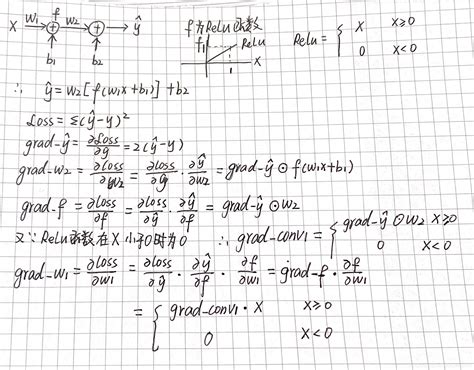 X w₁ f w₂ ŷ f为Relu函数 Relu = { X X≥0
b₁ b₂ f₁ Relu 1 X 0 X<0
∴ ŷ = w₂[f(w₁x+b₁)] + b₂
Loss = Σ(ŷ-y)²
grad-ŷ = ∂Loss/∂ŷ = 2(ŷ-y)
grad-w₂ = ∂Loss/∂w₂ = ∂Loss/∂ŷ · ∂ŷ/∂w₂ = grad-ŷ ⊙ f(w₁x+b₁)
grad-f = ∂loss/∂f = ∂loss/∂ŷ · ∂ŷ/∂f = grad-ŷ ⊙ w₂
又∵Relu函数在X小于0时为0 ∴ grad-conv₁ = { grad-ŷ ⊙ w₂ X≥0
0 X<0
grad-w₁ = ∂loss/∂w₁ = ∂loss/∂ŷ · ∂ŷ/∂f · ∂f/∂w₁ = grad-f · ∂f/∂w₁
= { grad-conv₁ · X X≥0
0 X<0